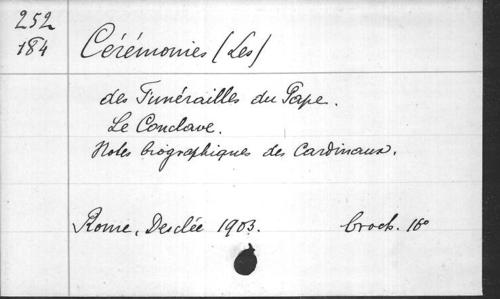 252
184
Cérémonies (Les)
des Funérailles du Pape.
Le Conclave.
Notes biographiques des Cardinaux.
Rome, Desclée 1903. broch. 16°